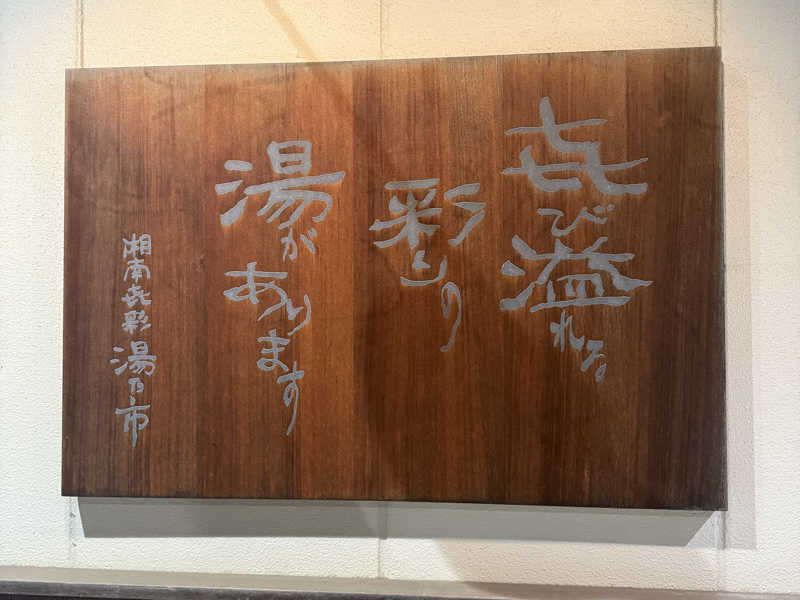 㐂び溢れる
彩りの
湯があります
湘南㐂彩湯乃市